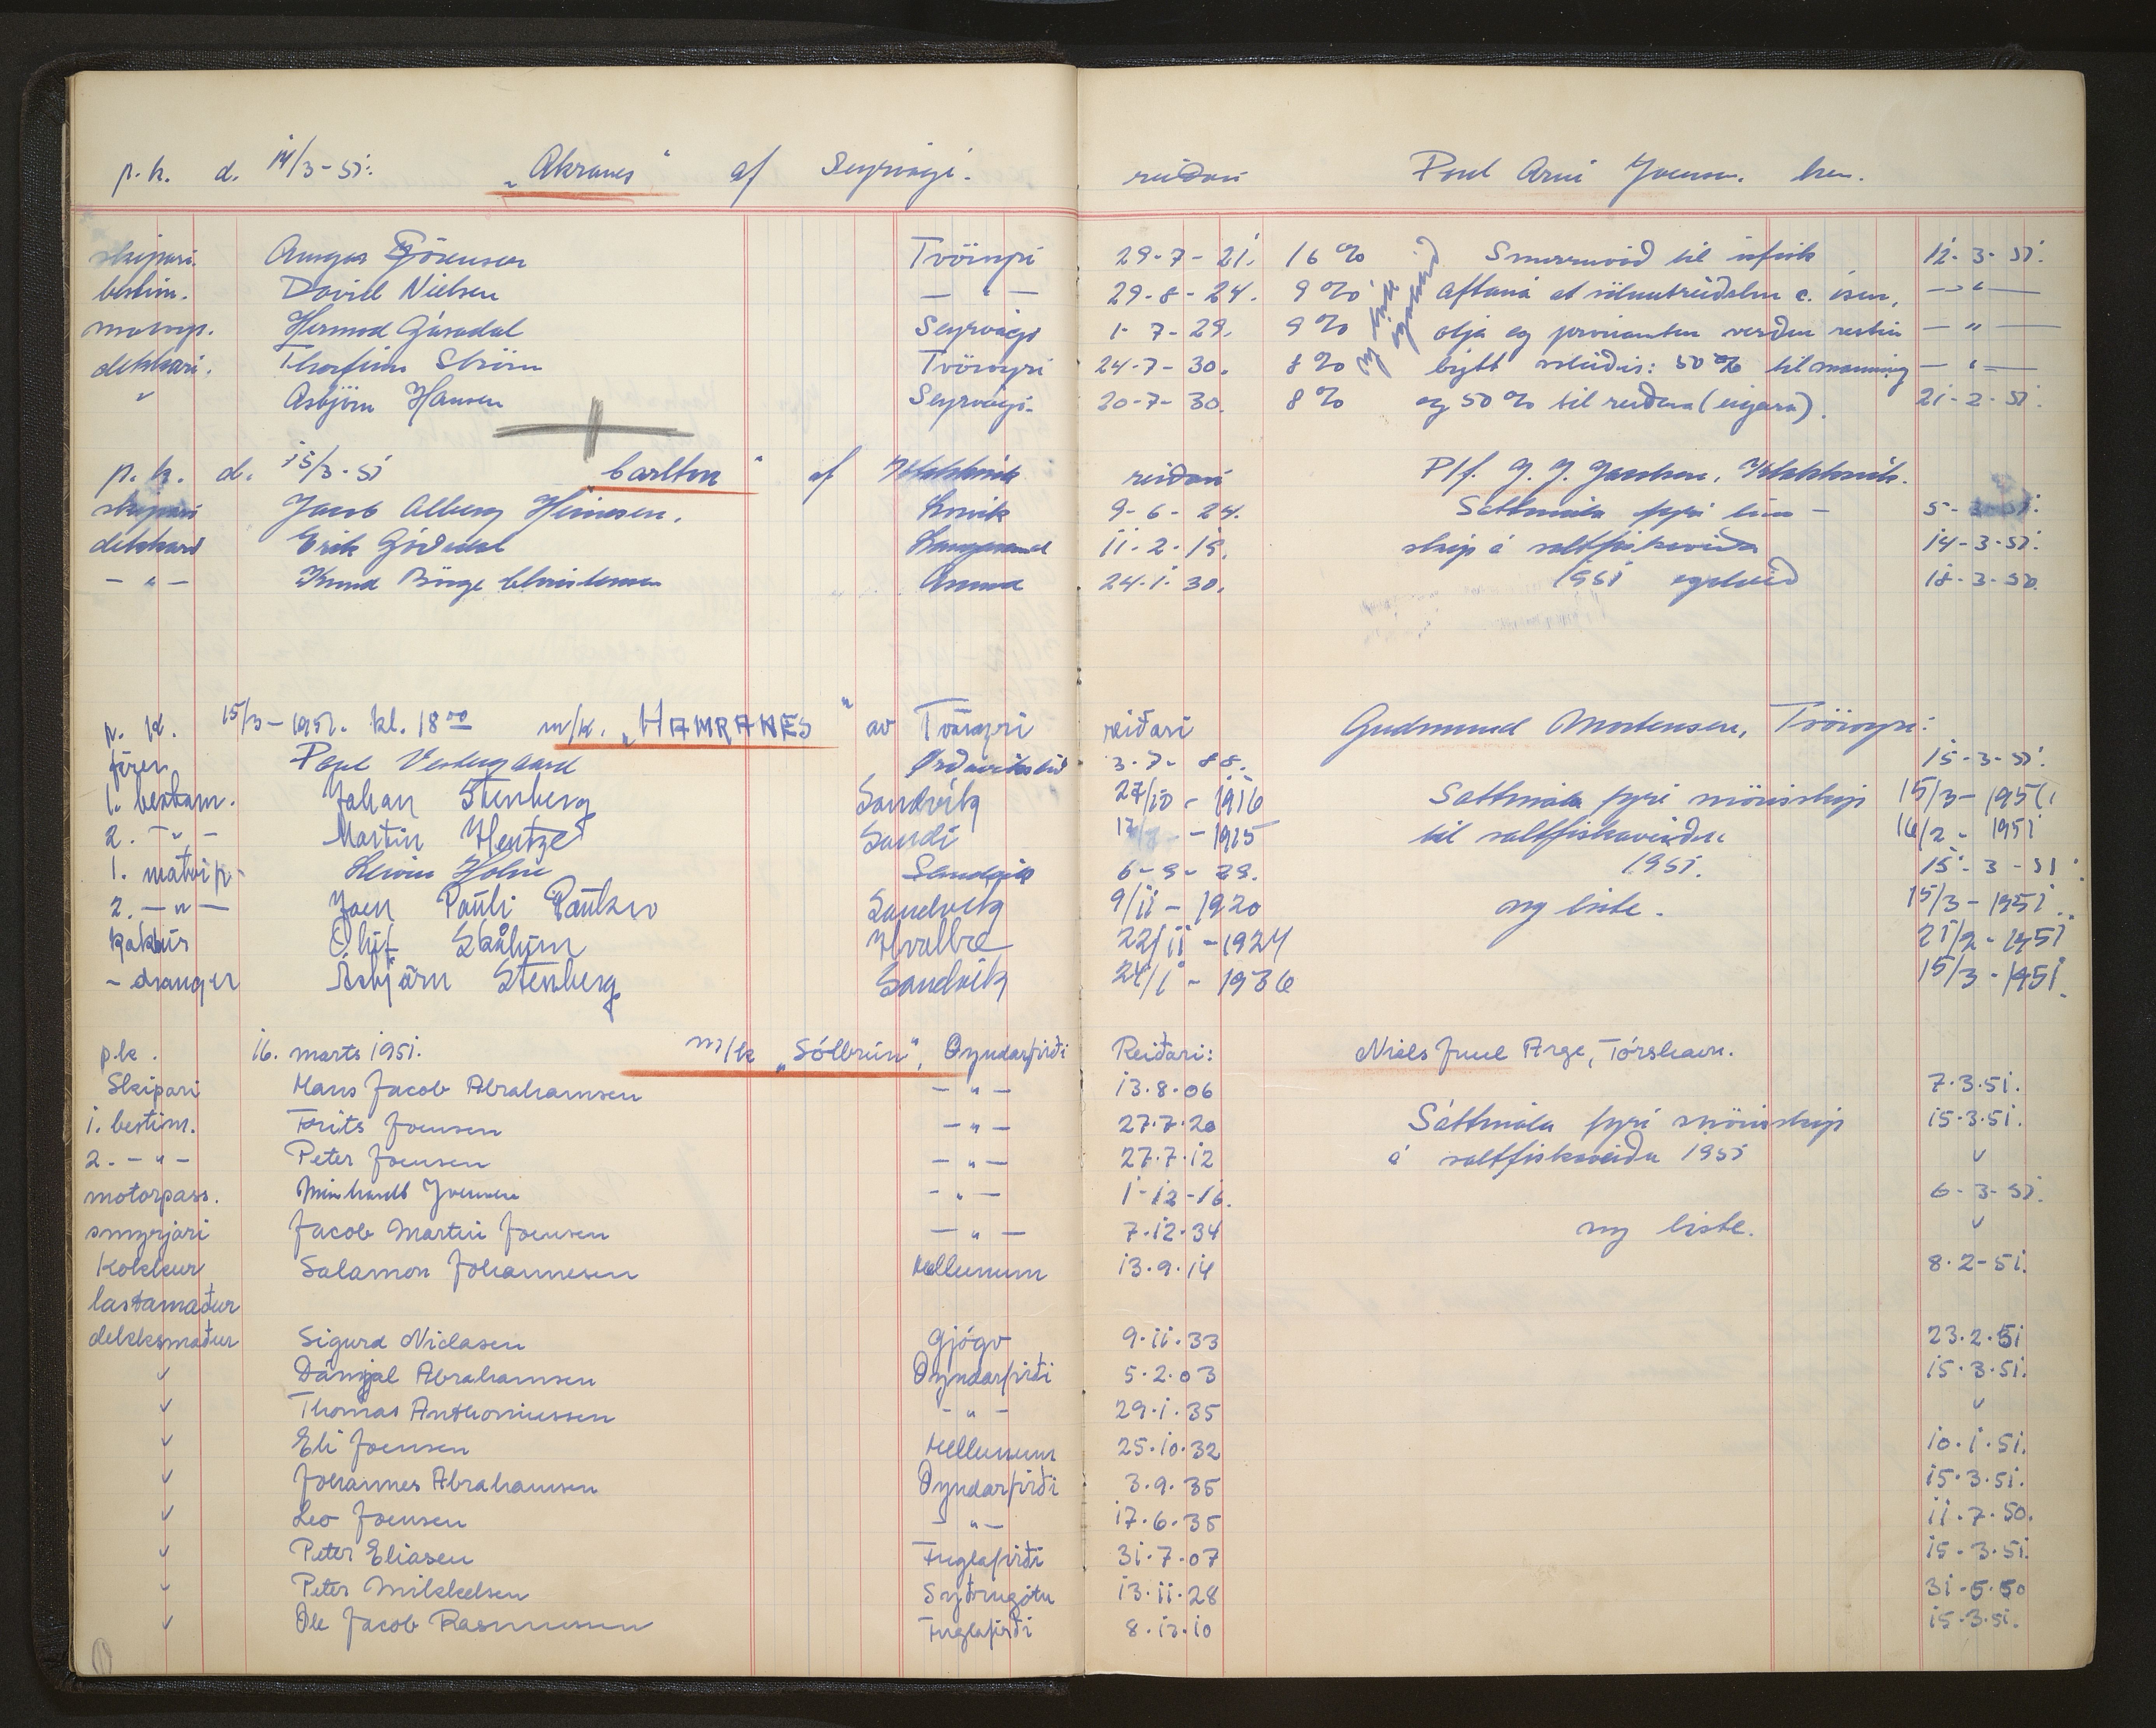 p.k. d. 14/3-51. "Akranes" af Seyrvági. reiðari Poul Arni Joensen. hsn.
skipari. Ansgar Sörensen Tvöroyri 29-7-21. 16% Smurrivið til ísfisk 12-3-51.
bestim. David Nielsen — " — 29-8-24. 9% aftaná at söluútreiðslur c. ísur, — " —
motorp. Hermod Gásadal Seyrvági 1-7-29. 9% olja og provianten verður restin — " —
dekkari. Thorfinn Ström Tvöroyri 24-7-30. 8% býtt soleiðis: 50% til manning — " —
" Asbjörn Hansen Seyrvági. 20-7-30. 8% og 50% til reiðara (eigara). 21-2-51.
ny liste
p.k. d. 15/3-51 "Carlton" af Klakksvik reiðari P/f. J. J. Jacobsen, Klakksvik.
skipari Jacob Alberg Heinesen. 9-6-24. Sáttmála fyri línu- 5-3-51.
dekkari Erik Góðadal Langasand 11.2.19. skip á saltfiskaveiðu 14-3-51.
— " — Knud Börge Christensen 24.1.30. 1951 18-3-50.
p. k. 15/3-1951. kl. 18 00 m/k. "HAMRANES" av Tvöroyri reiðari Gudmund Mortensen, Tvöroyri.
förer Poul Vestergaard Ørðavikslíð 3-7-88. 15-3-51.
1. bestm. Johan Stenberg Sandvik 27/10-1916 Sáttmála fyri snöriskip 15/3-1951
2. — " — Martin Hentze Sandi -1915 til saltfiskaveiðu 16/2-1951
1. matvip. Holm Sandvik 6-9-29. 1951. 15-3-51
2. — " — Joen Pauli Sandvik 9/11-1920 ny liste. 15/3-1951
kokkur Oluf Hvalbæ 22/11-1924 21/2-1951
- dranger Asbjörn Stenberg Sandvik 24/1-1936 15/3-1951
p.k. 16. marts 1951. m/k "Sólbrún", Oyndarfirði Reiðari: Niels Juul Arge, Tórshavn.
Skipari Hans Jacob Abrahamsen — " — 13.8.06 7.3.51.
1. bestim. Frits Joensen — " — 27.7.20 Sáttmála fyri snöriskip 15.3.51.
2. — " — Peter Joensen — " — 27.7.12 á saltfiskaveiðu 1951 "
motorpass. Minhardt Joensen — " — 1-12-16. 6-3-51.
smyrjari Jacob Martin Joensen — " — 7.12.34 ny liste. "
Kokkur Salamon Johannesen Hellunum 13.9.14 8.2-51.
lastamaður
dekksmaður Sigurd Niclasen Gjógv 9.11.33 23.2.51
" Dánjal Abrahamsen Oyndarfirði 5.2.03 15.3.51.
" Thomas Anthoniussen — " — 29.1.35 "
" Eli Joensen Hellunum 25.10.32 10.1.51.
" Johannes Abrahamsen Oyndarfirði 3.9.35 15.3.51.
" Leo Joensen — " — 17.6.35 11.7.50.
" Peter Eliasen Fuglafirði 31.7.07 15.3.51.
" Peter Mikkelsen Syðrugötu 13.11.28 31.5.50
" Ole Jacob Rasmussen Fuglafirði 8.12.10 15.3.51.